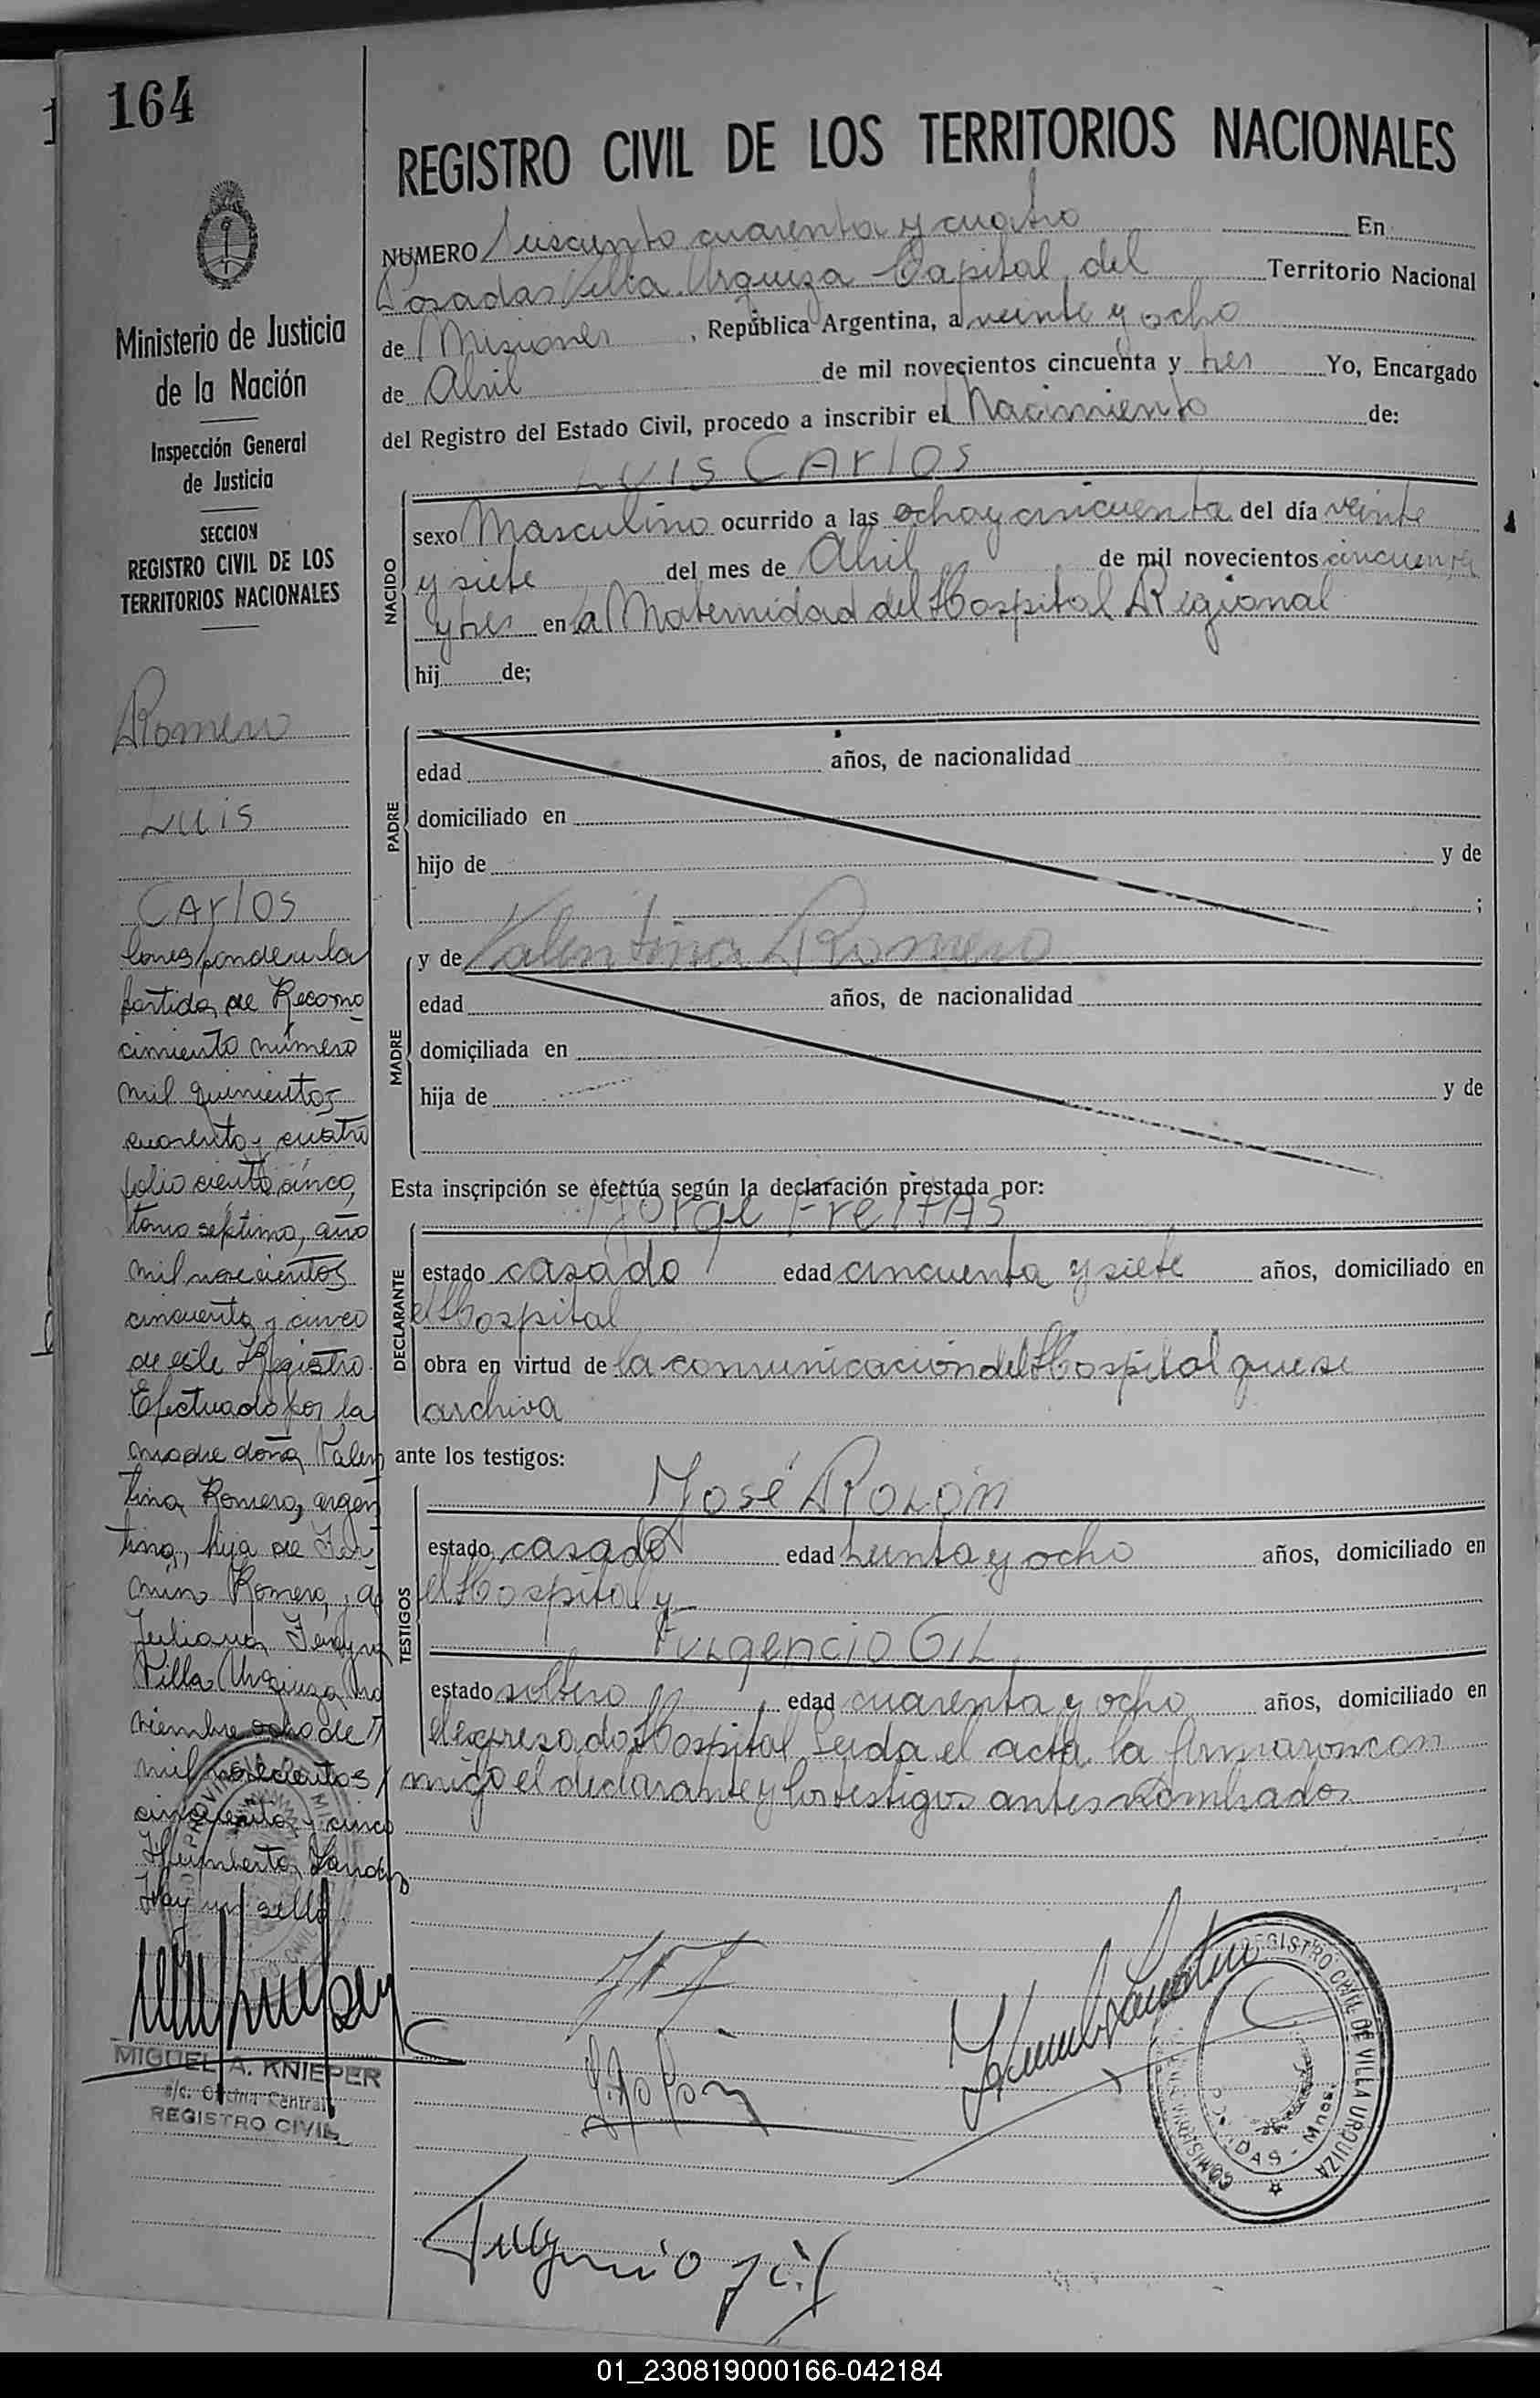 164
REGISTRO CIVIL DE LOS TERRITORIOS NACIONALES
Ministerio de Justicia
de la Nación
Inspección General
de Justicia
SECCION
REGISTRO CIVIL DE LOS
TERRITORIOS NACIONALES
Romero
Luis
Carlos
Corresponde a la
partida de Recono
cimiento número
mil quinientos
cuarenta y cuatro
folio ciento cinco,
tomo séptimo, año
mil novecientos
cincuenta y cinco
de este Registro.
Efectuado por la
madre doña Valen
tina Romero, argen
tina, hija de Fer
mín Romero, y de
Juliana
Villa Urquiza, no
viembre ocho de
mil novecientos
cincuenta y cinco
Humberto
Hay un sello.
MIGUEL A. KNIEPER
e/c. Oficina Central
REGISTRO CIVIL
NUMERO Seiscientos cuarenta y cuatro En
Posadas Villa Urquiza Capital del Territorio Nacional
de Misiones, República Argentina, a veinte y ocho
de Abril de mil novecientos cincuenta y tres Yo, Encargado
del Registro del Estado Civil, procedo a inscribir el Nacimiento de:
LUIS CArlos
NACIDO
sexo Masculino ocurrido a las ocho y cincuenta del día veinte
y siete del mes de Abril de mil novecientos cincuenta
y tres en la Maternidad del Hospital Regional
hij de;
PADRE
edad años, de nacionalidad
domiciliado en
hijo de y de
;
MADRE
y de Valentina Romero
edad años, de nacionalidad
domiciliada en
hija de y de
Esta inscripción se efectúa según la declaración prestada por:
DECLARANTE
Jorge FreitAs
estado casado edad cincuenta y siete años, domiciliado en
el Hospital
obra en virtud de la comunicación del Hospital que se
archiva
ante los testigos:
TESTIGOS
José ROLÓN
estado casado edad treinta y ocho años, domiciliado en
el Hospital y
FuLgencio GIL
estado soltero edad cuarenta y ocho años, domiciliado en
el expresado Hospital Leida el acta la firmaron con
migo el declarante y los testigos antes nombrados
J. Rolón
Fulgencio Gil
REGISTRO CIVIL DE VILLA URQUIZA
POSADAS - Mnes.
01_230819000166-042184